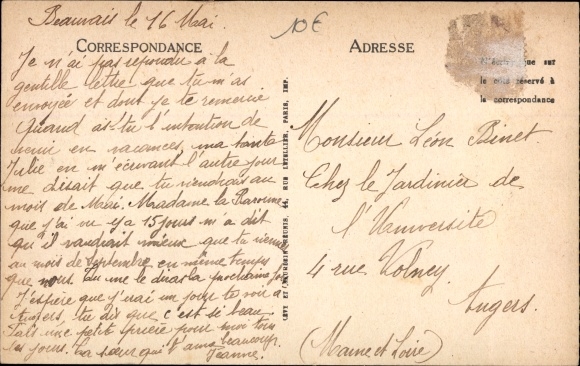 Beauvais le 16 Mai.
10€
CORRESPONDANCE
ADRESSE
Je n'ai pas repondu à la
gentille lettre que tu m'as
envoyée et dont je te remercie
Quand as-tu l'intention de
venir en vacances, ma tante
Julie en m'écrivant l'autre jour
me disait que tu viendrais au
mois de Mai. Madame la Baronne
que j'ai vu y a 15 jours m'a dit
qu'il vaudrait mieux que tu viennes
au mois de Septembre en même temps
que nous. Tu me le diras la prochaine fois
J'espère que j'irai un jour te voir à
Angers, tu dis que c'est si beau.
Fais une petite prière pour moi tous
les jours. La sœur qui t'aime beaucoup.
Jeanne.
LÉVY ET NEURDEIN RÉUNIS, 44, RUE LETELLIER, PARIS, IMP.
que sur
le côté réservé à
la correspondance
Monsieur Léon Binet.
Chez le Jardinier de
l'Université
4 rue Volney.
Angers.
(Maine et Loire)